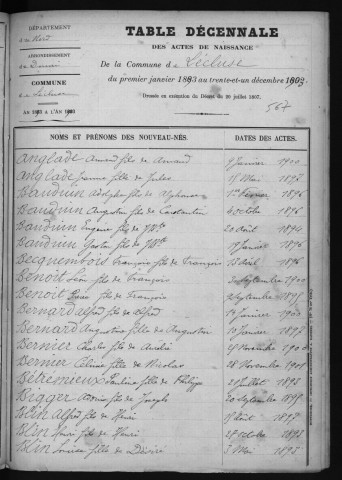 DÉPARTEMENT
du Nord
ARRONDISSEMENT
de Douai
COMMUNE
de Lécluse
AN 1893 A L'AN 1903
TABLE DÉCENNALE
DES ACTES DE NAISSANCE
De la Commune de Lécluse
du premier janvier 1893 au trente-et-un décembre 1903
Dressée en exécution du Décret du 20 juillet 1807.
567
NOMS ET PRÉNOMS DES NOUVEAU-NÉS.
DATES DES ACTES.
Anglade Armand fils de Armand 9 Janvier 1900
Anglade Jeanne fille de Jules 15 Mai 1897
Bauduin Adolphe fils de Alphonse 1er Février 1896
Bauduin Augustin fils de Constantin 4 octobre 1896
Bauduin Eugène fils de 20 août 1894
Bauduin Gaston fils de 19 Janvier 1896
Becquembois François fils de François 13 Avril 1896
Benoit Léon fils de François Septembre 1900
Benoit fils de François Septembre 1895
Bernard Alfred fils de Alfred Janvier 1900
Bernard Augustine fille de Augustin 10 Janvier 1897
Bernier Charles fils de Novembre 1900
Bernier Celina fille de Nicolas 28 Novembre 1901
Bétremieux Pauline fille de Philippe Juillet 1893
Bigger fils de Joseph 20 septembre 1895
Blin Alfred fils de Henri août 1897
Blin Henri fils de Henri 27 octobre 1893
Blin Louise fille de Désiré 3 Mai 1895